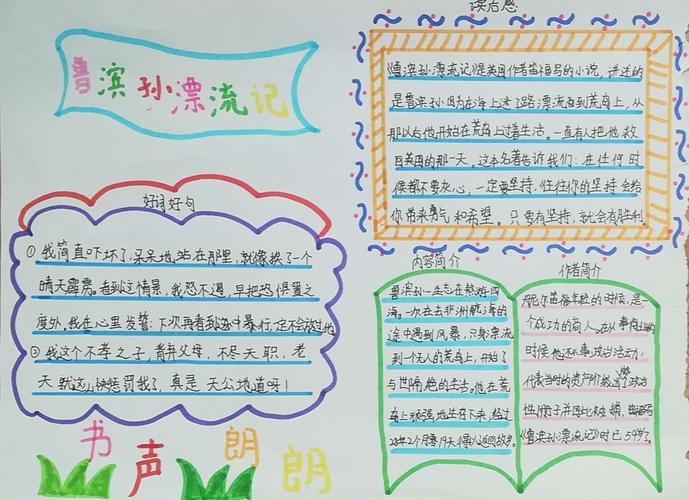 鲁滨孙漂流记
读后感
《鲁滨孙漂流记》是英国作者笛福写的小说,讲述的
是鲁滨孙因为在海上迷了路漂流到荒岛上,从
那以后他开始在荒岛上过着生活。一直有人把他救
回英国的那一天。这本名著告诉我们:在任何时
候都不要灰心,一定要坚持,往往你的坚持会给
你带来勇气和希望。只要有坚持,就会有胜利
好词好句
①我简直吓坏了,呆呆地站在那里,就像挨了一个
晴天霹雳。看到这情景,我恐不遏,早把恐惧置之
度外。我在心里发誓:下次再看到这中暴行,定不会放过他
②我这个不孝之子,背弃父母,不尽天职,老
天就这么快惩罚我了,真是天公地道呀!
内容简介
鲁滨孙一生志在熬游四
海。一次在去非洲航海的
途中遇到风暴,只身漂流
到一个无人的荒岛上,开始了
与世隔绝的生活。他在荒
岛上顽强地生存下来,经过
28年2个月零19天得以返回故乡。
作者简介
尼尔笛福年轻的时候,是
一个成功的商人。在从事商业的
时候他还从事政治活动,
代表当时的资产阶级
《鲁滨孙漂流记》时已59岁了。
书声朗朗